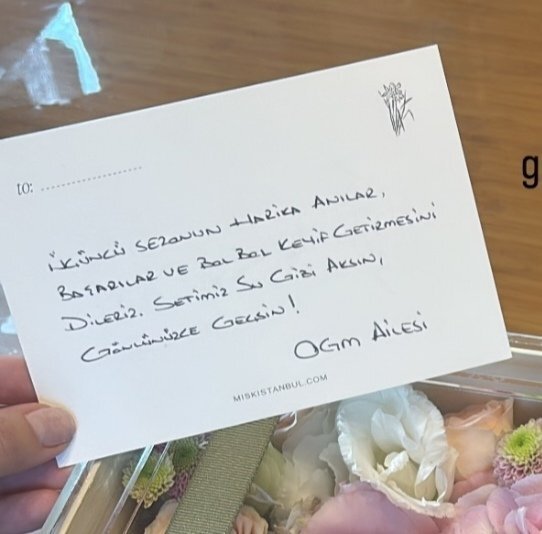 to: ....................
İKİNCİ SEZONUN HARİKA ANILAR,
BAŞARILAR VE BOL BOL KEYİF GETİRMESİNİ
DİLERİZ. SETİMİZ SU GİBİ AKSIN,
GÖNLÜNÜZCE GEÇSİN!
OGM AİLESİ
MISKISTANBUL.COM
g